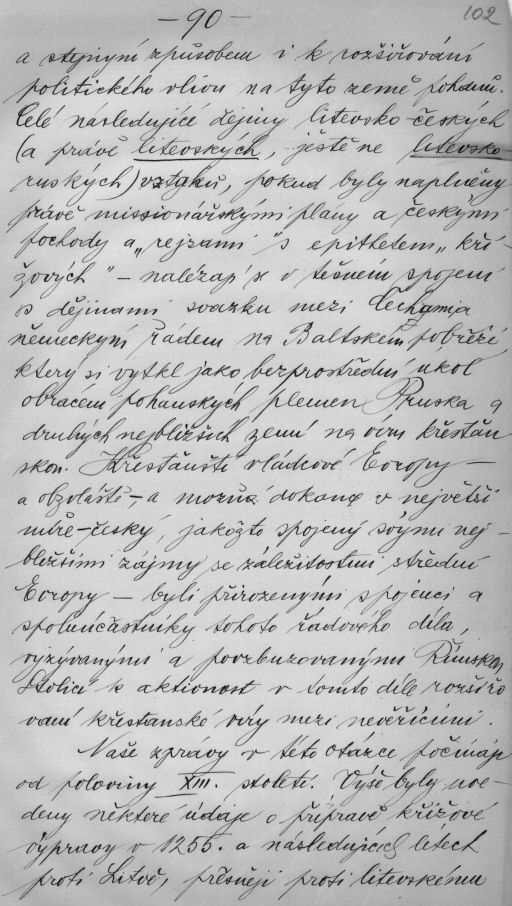 – 90 –
102
a stejným způsobem i k rozšiřování
politického vlivu na tyto země pohanů.
Celé následující dějiny litevsko-českých
(a právě litevských, ještě ne litevsko-
ruských) vztahů, pokud byly naplněny
právě missionářskými plany a českými
pochody a „rejzami" s epithetem „kří-
žových" – nalézají se v těsném spojení
s dějinami svazku mezi Čechami a
německým řádem na Baltském pobřeží,
který si vytkl jako bezprostřední úkol
obrácení pohanských plemen Pruska a
druhých nejbližších zemí na víru křesťan
skou. Křesťanští vládcové Evropy –
a obzvláště –, a možná dokonce v největší
míře – český, jakožto spojený svými nej-
bližšími zájmy se záležitostmi střední
Evropy – byli přirozenými spojenci a
spoluúčastníky tohoto řádového díla,
vyzývanými a povzbuzovanými Římskou
Stolicí k aktivnost v tomto díle rozšiřo
vaní křesťanské víry mezi nevěřícími.
Naše zprávy v této otázce počínají
od poloviny XIII. století. Výše byly uve-
deny některé údaje o přípravě křížové
výpravy v 1255. a následujících létech
proti Litvě, přesněji proti litevskému